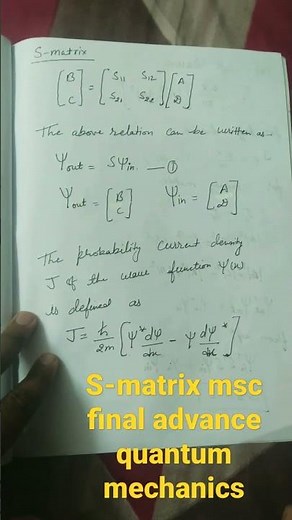 S-matrix
[B C] = [S11 S12 S21 S22] [A D]
The above relation can be written as
Ψout = SΨin. — ①
Ψout = [B C] Ψin = [A D]
The probability current density
J of the wave function Ψ(x)
is defined as
J = ħ/2m [Ψ* dΨ/dx - Ψ dΨ*/dx]
S-matrix msc
final advance
quantum
mechanics